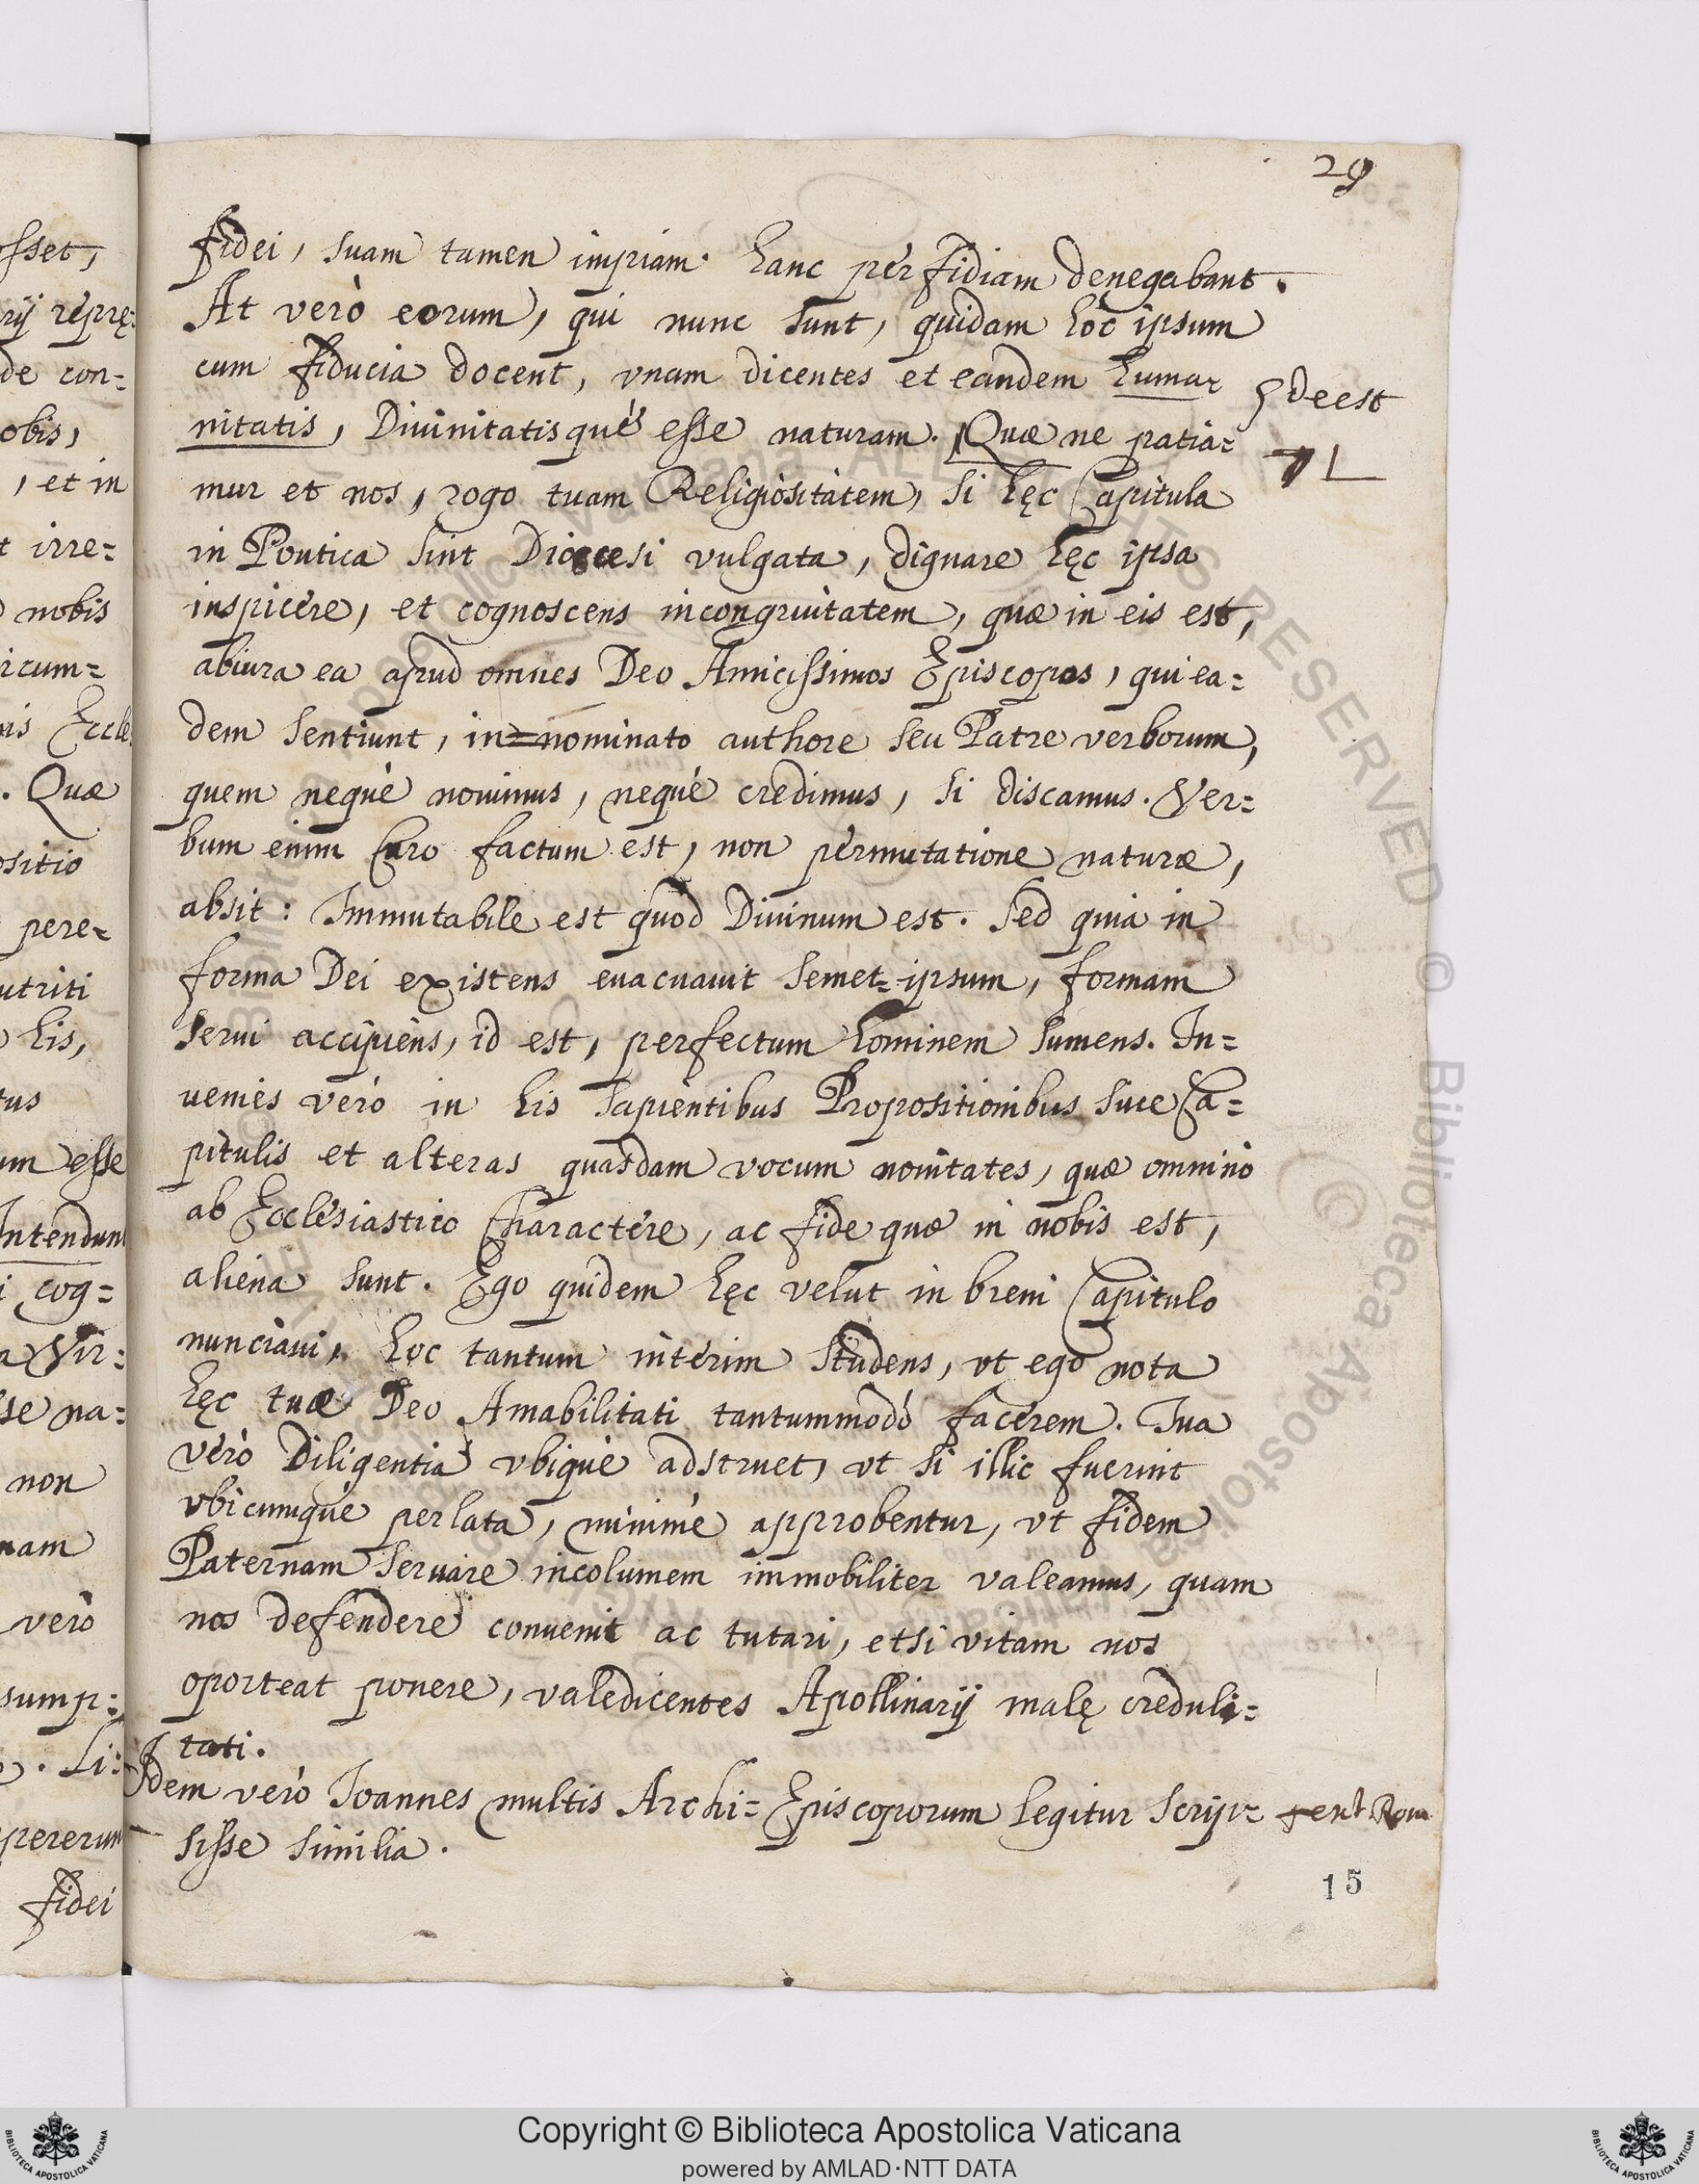 29
fidei, suam tamen impiam hanc perfidiam denegabant.
At verò eorum, qui nunc sunt, quidam hoc ipsum
cum fiducia docent, vnam dicentes et eandem huma-
nitatis, Diuinitatisquè esse naturam. Quæ ne patia=
mur et nos, rogo tuam Religiositatem, si hęc Capitula
in Pontica sint Diœcesi vulgata, dignare hęc ipsa
inspicere, et cognoscens incongruitatem, quæ in eis est,
abiura ea apud omnes Deo Amicissimos Episcopos, qui ea=
dem sentiunt, in=nominato authore seu Patre verborum,
quem nequè nouimus, nequè credimus, si discamus. Ver=
bum enim Caro factum est, non permutatione naturæ,
absit: Immutabile est quod Diuinum est. Sed quia in
forma Dei existens euacuauit semet=ipsum, formam
serui accipiens, id est, perfectum hominem sumens. In=
uenies verò in his sapientibus Propositionibus siue Ca=
pitulis et alteras quasdam vocum nouitates, quæ omnino
ab Ecclesiastico Charactere, ac fide quæ in nobis est,
aliena sunt. Ego quidem hęc velut in breui Capitulo
nunciaui, hoc tantum interim studens, vt ego nota
hęc tuæ Deo Amabilitati tantummodò facerem. Tua
verò Diligentia vbiquè adstruet, vt si illic fuerint
vbicumquè perlata, minimè approbentur, vt fidem
Paternam seruare incolumem immobiliter valeamus, quam
nos defendere conuenit ac tutari, etsi vitam nos
oporteat ponere, valedicentes Apollinarij malę creduli=
tati.
Idem verò Ioannes multis Archi=Episcoporum legitur scrip=
sisse similia.
deest
L
text Rom
15
sset,
rij reprę=
de con=
obis,
, et in
t irre=
nobis
ircum=
is Eccle
. Quæ
ositio
pere=
utriti
his,
tus
um esse
Intendunt
i cog=
a Vir=
se na=
non
nam
verò
sump=
. Li=
pererunt
fidei
Copyright © Biblioteca Apostolica Vaticana
powered by AMLAD·NTT DATA
BIBLIOTECA APOSTOLICA VATICANA
BIBLIOTECA APOSTOLICA VATICANA